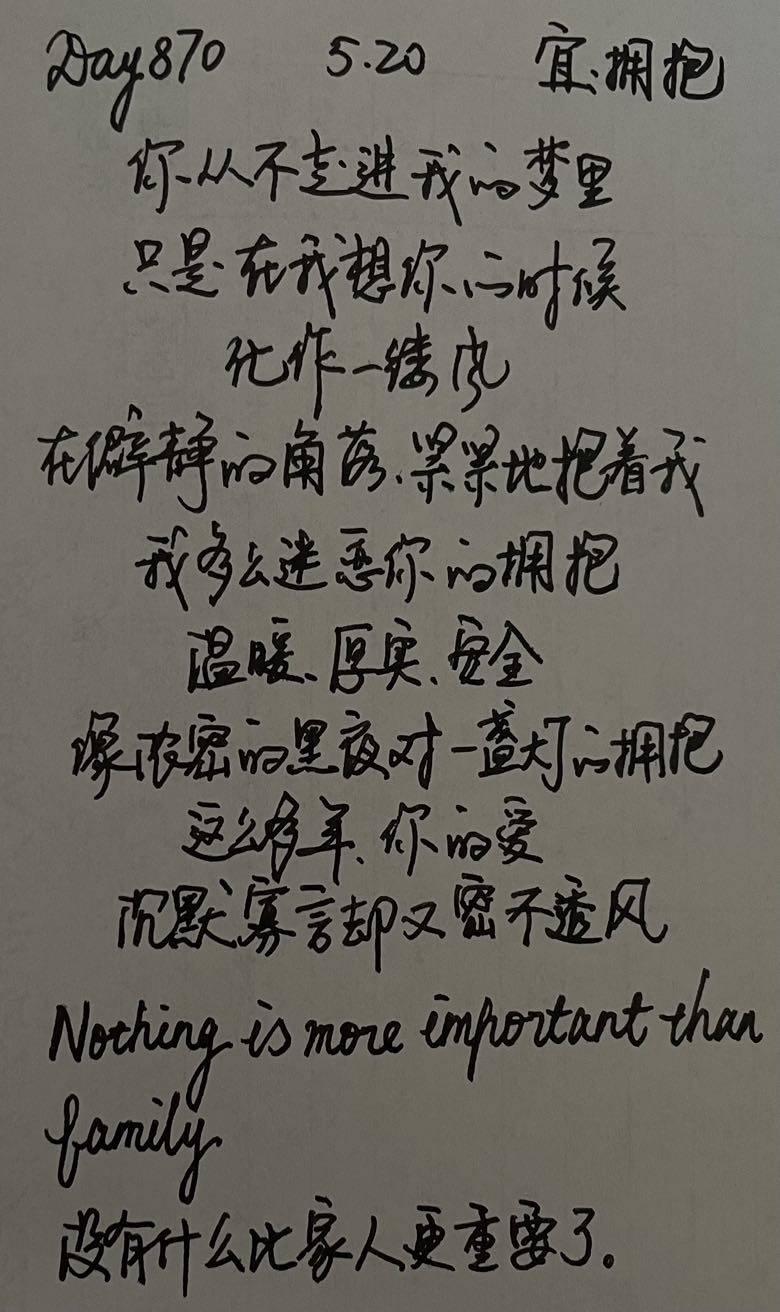 Day870 5.20 宜.拥抱
你从不走进我的梦里
只是在我想你的时候
化作一缕风
在僻静的角落,紧紧地抱着我
我多么迷恋你的拥抱
温暖、厚实、安全
像浓密的黑夜对一盏灯的拥抱
这么多年、你的爱
沉默寡言却又密不透风
Nothing is more important than
family
没有什么比家人更重要了。